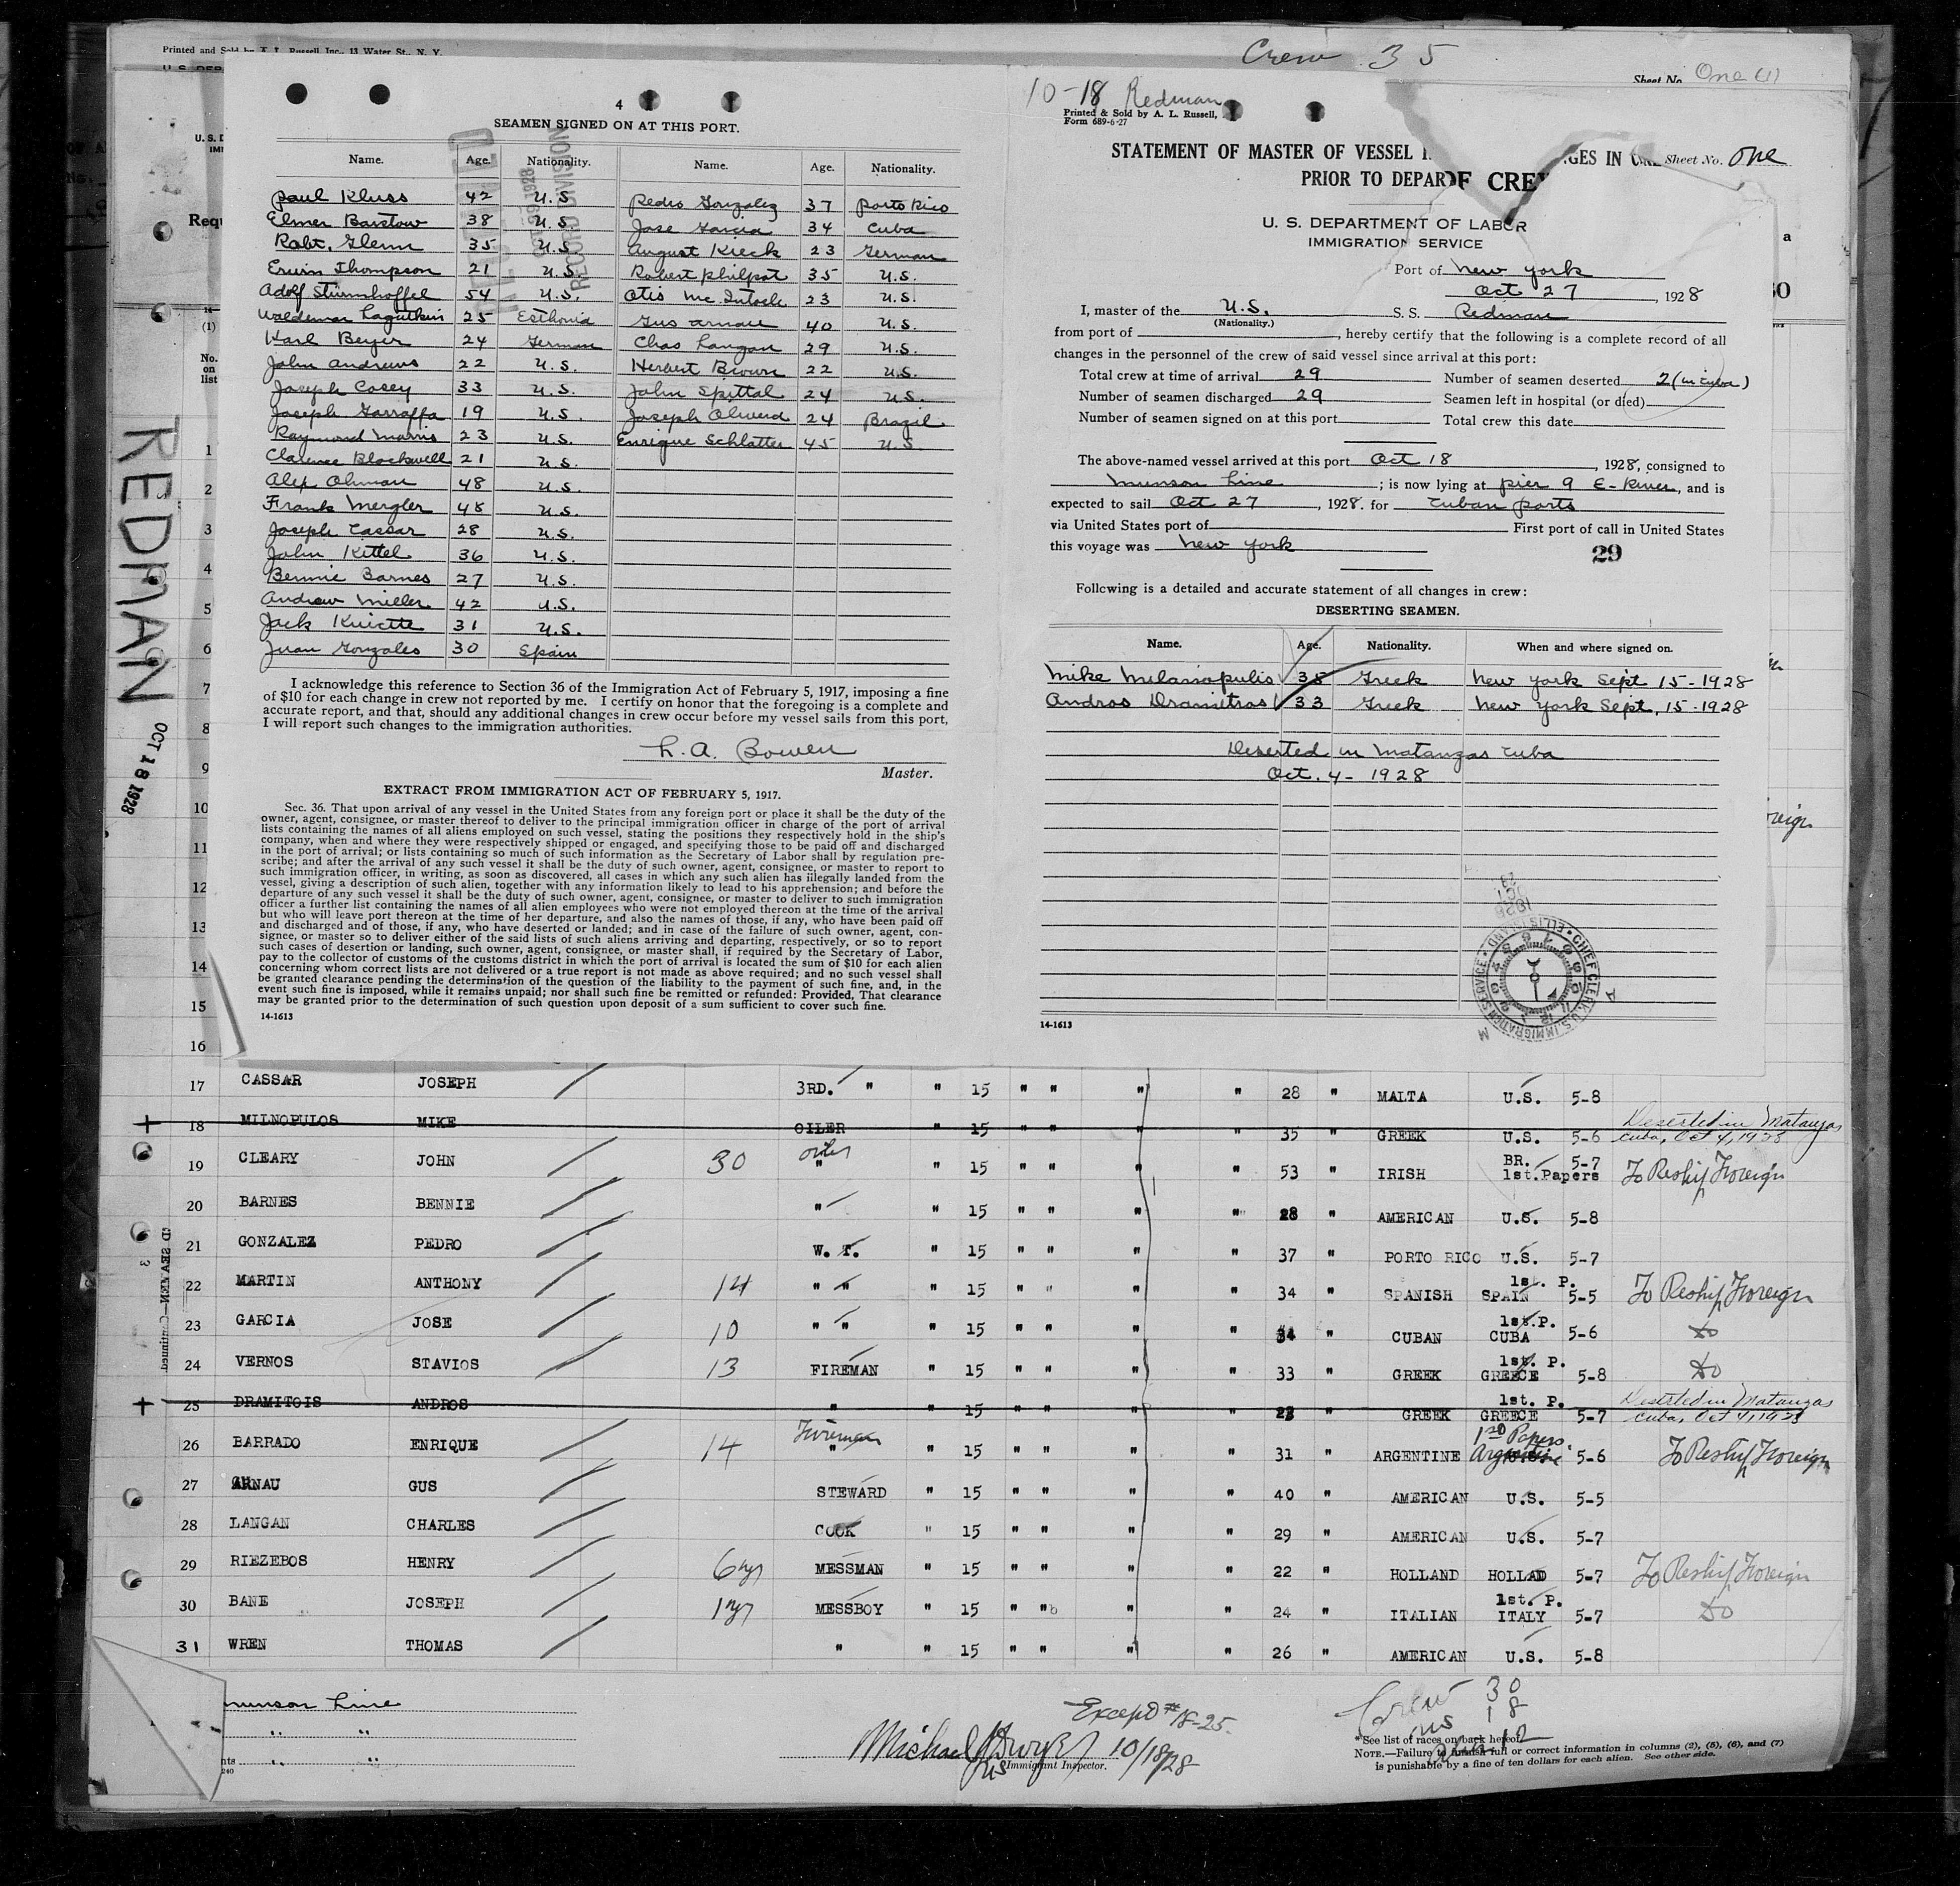 Printed and Sold by A. L. Russell Inc., 13 Water St., N. Y.
Crew 35
Sheet No. One (1)
4
SEAMEN SIGNED ON AT THIS PORT.
Name. Age. Nationality. Name. Age. Nationality.
Paul Kluss 42 U.S. Pedro Gonzalez 37 Porto Rico
Elmer Barstow 38 U.S. Jose Garcia 34 Cuba
Robt. Glenn 35 U.S. August Kieck 23 German
Erwin Thompson 21 U.S. Robert Philpot 35 U.S.
Adolf Stürmhoffel 54 U.S. Otis Mc.Intosh 23 U.S.
Waldemar Lagutkin 25 Esthonia Gus Arnau 40 U.S.
Karl Beyer 24 German Chas Langan 29 U.S.
John Andrews 22 U.S. Herbert Brown 22 U.S.
Joseph Casey 33 U.S. John Spittal 24 U.S.
Joseph Garraffa 19 U.S. Joseph 24 Brazil
Raymond Morris 23 U.S. Enrique Schlatter 45 U.S.
Clarence Blackwell 21 U.S.
Alex Ohman 48 U.S.
Frank Mergler 48 U.S.
Joseph Cassar 28 U.S.
John Kittel 36 U.S.
Bennie Barnes 27 U.S.
Andrew Miller 42 U.S.
Jack 31 U.S.
Juan Gonzales 30 Spain
I acknowledge this reference to Section 36 of the Immigration Act of February 5, 1917, imposing a fine
of $10 for each change in crew not reported by me. I certify on honor that the foregoing is a complete and
accurate report, and that, should any additional changes in crew occur before my vessel sails from this port,
I will report such changes to the immigration authorities.
L. A. Bowen
Master.
EXTRACT FROM IMMIGRATION ACT OF FEBRUARY 5, 1917.
Sec. 36. That upon arrival of any vessel in the United States from any foreign port or place it shall be the duty of the
owner, agent, consignee, or master thereof to deliver to the principal immigration officer in charge of the port of arrival
lists containing the names of all aliens employed on such vessel, stating the positions they respectively hold in the ship's
company, when and where they were respectively shipped or engaged, and specifying those to be paid off and discharged
in the port of arrival; or lists containing so much of such information as the Secretary of Labor shall by regulation pre-
scribe; and after the arrival of any such vessel it shall be the duty of such owner, agent, consignee, or master to report to
such immigration officer, in writing, as soon as discovered, all cases in which any such alien has illegally landed from the
vessel, giving a description of such alien, together with any information likely to lead to his apprehension; and before the
departure of any such vessel it shall be the duty of such owner, agent, consignee, or master to deliver to such immigration
officer a further list containing the names of all alien employees who were not employed thereon at the time of the arrival
but who will leave port thereon at the time of her departure, and also the names of those, if any, who have been paid off
and discharged and of those, if any, who have deserted or landed; and in case of the failure of such owner, agent, con-
signee, or master so to deliver either of the said lists of such aliens arriving and departing, respectively, or so to report
such cases of desertion or landing, such owner, agent, consignee, or master shall, if required by the Secretary of Labor,
pay to the collector of customs of the customs district in which the port of arrival is located the sum of $10 for each alien
concerning whom correct lists are not delivered or a true report is not made as above required; and no such vessel shall
be granted clearance pending the determination of the question of the liability to the payment of such fine, and, in the
event such fine is imposed, while it remains unpaid; nor shall such fine be remitted or refunded: Provided, That clearance
may be granted prior to the determination of such question upon deposit of a sum sufficient to cover such fine.
14-1613
10-18 Redman
Printed & Sold by A. L. Russell,
Form 689-6-27
STATEMENT OF MASTER OF VESSEL GES IN Sheet No. One
PRIOR TO DEPAR F CREW
U. S. DEPARTMENT OF LABOR
IMMIGRATION SERVICE
Port of New York
Oct 27, 1928
I, master of the U.S. S. S. Redman
(Nationality.)
from port of, hereby certify that the following is a complete record of all
changes in the personnel of the crew of said vessel since arrival at this port:
Total crew at time of arrival 29 Number of seamen deserted 2 (in Cuba)
Number of seamen discharged 29 Seamen left in hospital (or died)
Number of seamen signed on at this port Total crew this date
The above-named vessel arrived at this port Oct 18, 1928, consigned to
Munson Line; is now lying at Pier 9 E-River, and is
expected to sail Oct 27, 1928. for Cuban ports
via United States port of First port of call in United States
this voyage was New York
29
Following is a detailed and accurate statement of all changes in crew:
DESERTING SEAMEN.
Name. Age. Nationality. When and where signed on.
Mike Milanopulis 35 Greek New York Sept 15-1928
Andros Dramitros 33 Greek New York Sept. 15-1928
Deserted in Matanzas Cuba
Oct. 4-1928
CHIEF CLERK, U.S. IMMIGRATION SERVICE · ELLIS ISLAND
14-1613
REDMAN
OCT 18 1928
RECORD DIVISION
No.
on
list
1
2
3
4
5
6
7
8
9
10
11
12
13
14
15
16
17 CASSAR JOSEPH 3RD. " " 15 " " " " 28 " MALTA U.S. 5-8
18 MILNOPULOS MIKE OILER " 15 " " " " 35 " GREEK U.S. 5-6 Deserted in Matanzas Cuba, Oct 4, 1928
19 CLEARY JOHN 30 oiler " " 15 " " " " 53 " IRISH BR. 1st.Papers 5-7 To Reship Foreign
20 BARNES BENNIE " " 15 " " " " 28 " AMERICAN U.S. 5-8
21 GONZALEZ PEDRO W. T. " 15 " " " " 37 " PORTO RICO U.S. 5-7
22 MARTIN ANTHONY 14 " " " 15 " " " " 34 " SPANISH 1st. P. SPAIN 5-5 To Reship Foreign
23 GARCIA JOSE 10 " " " 15 " " " " 34 " CUBAN 1st.P. CUBA 5-6 Do
24 VERNOS STAVIOS 13 FIREMAN " 15 " " " " 33 " GREEK 1st. P. GREECE 5-8 Do
25 DRAMITOIS ANDROS " " 15 " " " " 23 " GREEK 1st. P. GREECE 5-7 Deserted in Matanzas Cuba, Oct 4, 1928
26 BARRADO ENRIQUE 14 Fireman " " 15 " " " " 31 " ARGENTINE 1st Papers Argentine 5-6 To Reship Foreign
27 ARNAU GUS STEWARD " 15 " " " " 40 " AMERICAN U.S. 5-5
28 LANGAN CHARLES COOK " 15 " " " " 29 " AMERICAN U.S. 5-7
29 RIEZEBOS HENRY 6 yrs MESSMAN " 15 " " " " 22 " HOLLAND HOLLAD 5-7 To Reship Foreign
30 BANE JOSEPH 1 yr MESSBOY " 15 " " " " 24 " ITALIAN 1st. P. ITALY 5-7 Do
31 WREN THOMAS " " 15 " " " " 26 " AMERICAN U.S. 5-8
Munson Line
" "
" "
Except # 18-25.
Michael J Dwyer 10/18/28
Immigrant Inspector.
Crew 30
US 18
Alien 12
*See list of races on back hereof.
NOTE.—Failure to furnish full or correct information in columns (2), (5), (6), and (7)
is punishable by a fine of ten dollars for each alien. See other side.